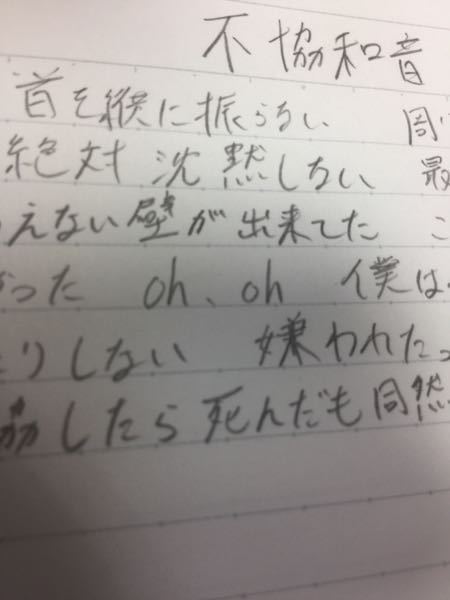 不協和音
首を縦に振らない 周
絶対沈黙しない 最
えない壁が出来てた こ
った oh、oh 僕は
りしない 嫌われたっ
協したら死んだも同然